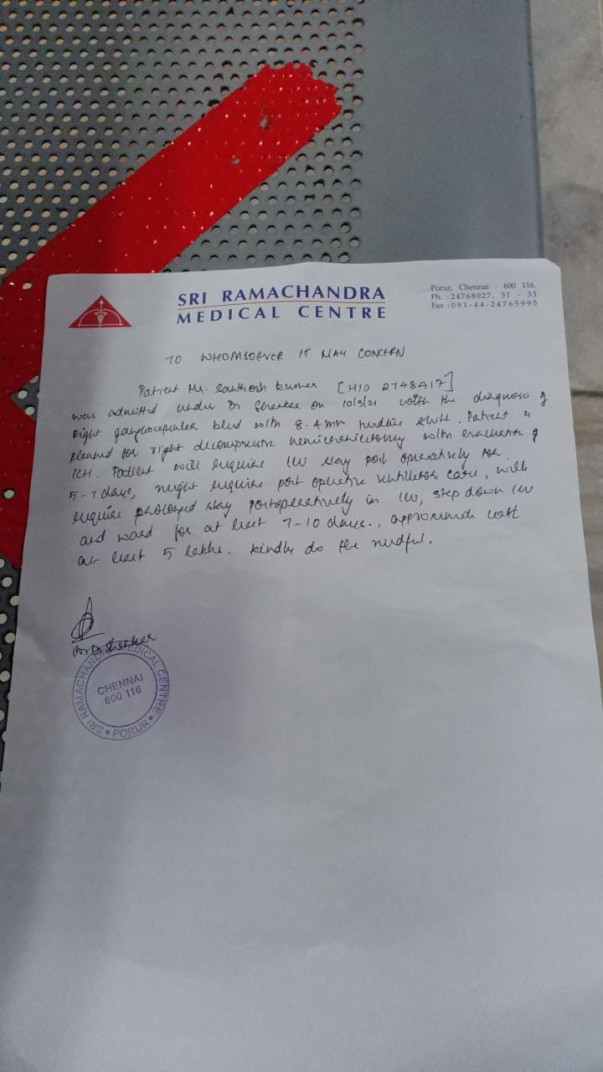 SRI RAMACHANDRA
MEDICAL CENTRE
Porur, Chennai - 600 116.
Ph. :24768027, 31 - 33
Fax :091-44-24765995
TO WHOMSOEVER IT MAY CONCERN
Patient Mr. Santhosh kumar [HID 2748417]
was admitted under Dr on 10/3/21 with the diagnosis of
Right gangliocapsular bleed with 8.4mm midline shift. Patient is
planned for right decompressive hemicraniectomy with evacuation of
ICH. Patient will require ICU stay post operatively for
5-7 days, might require post operative ventilator care, will
require prolonged stay postoperatively in ICU, step down ICU
and ward for at least 7-10 days., approximate cost
at least 5 lakhs. kindly do the needful.
SRI RAMACHANDRA MEDICAL CENTRE
CHENNAI
600 116
* PORUR *